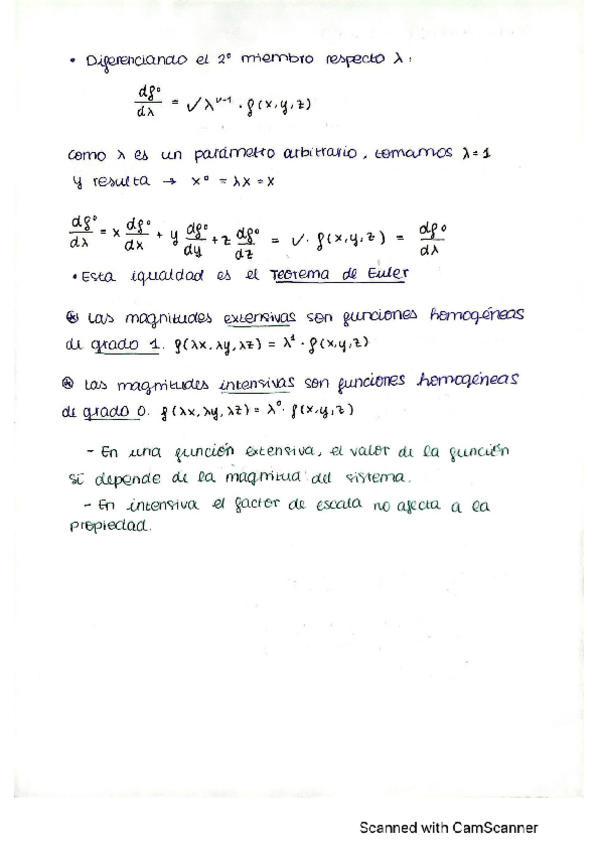 • Diferenciando el 2º miembro respecto λ:
df°/dλ = √λ^(ν-1) · f(x,y,z)
como λ es un parámetro arbitrario, tomamos λ=1
y resulta → x° = λx = x
df°/dλ = x df°/dx + y df°/dy + z df°/dz = √. f(x,y,z) = df°/dλ
• Esta igualdad es el Teorema de Euler
⊛ Las magnitudes extensivas son funciones homogéneas
de grado 1. f(λx, λy, λz) = λ¹ · f(x,y,z)
⊛ Las magnitudes intensivas son funciones homogéneas
de grado 0. f(λx, λy, λz) = λ⁰ · f(x,y,z)
- En una función extensiva, el valor de la función
sí depende de la magnitud del sistema.
- En intensiva el factor de escala no afecta a la
propiedad.
Scanned with CamScanner